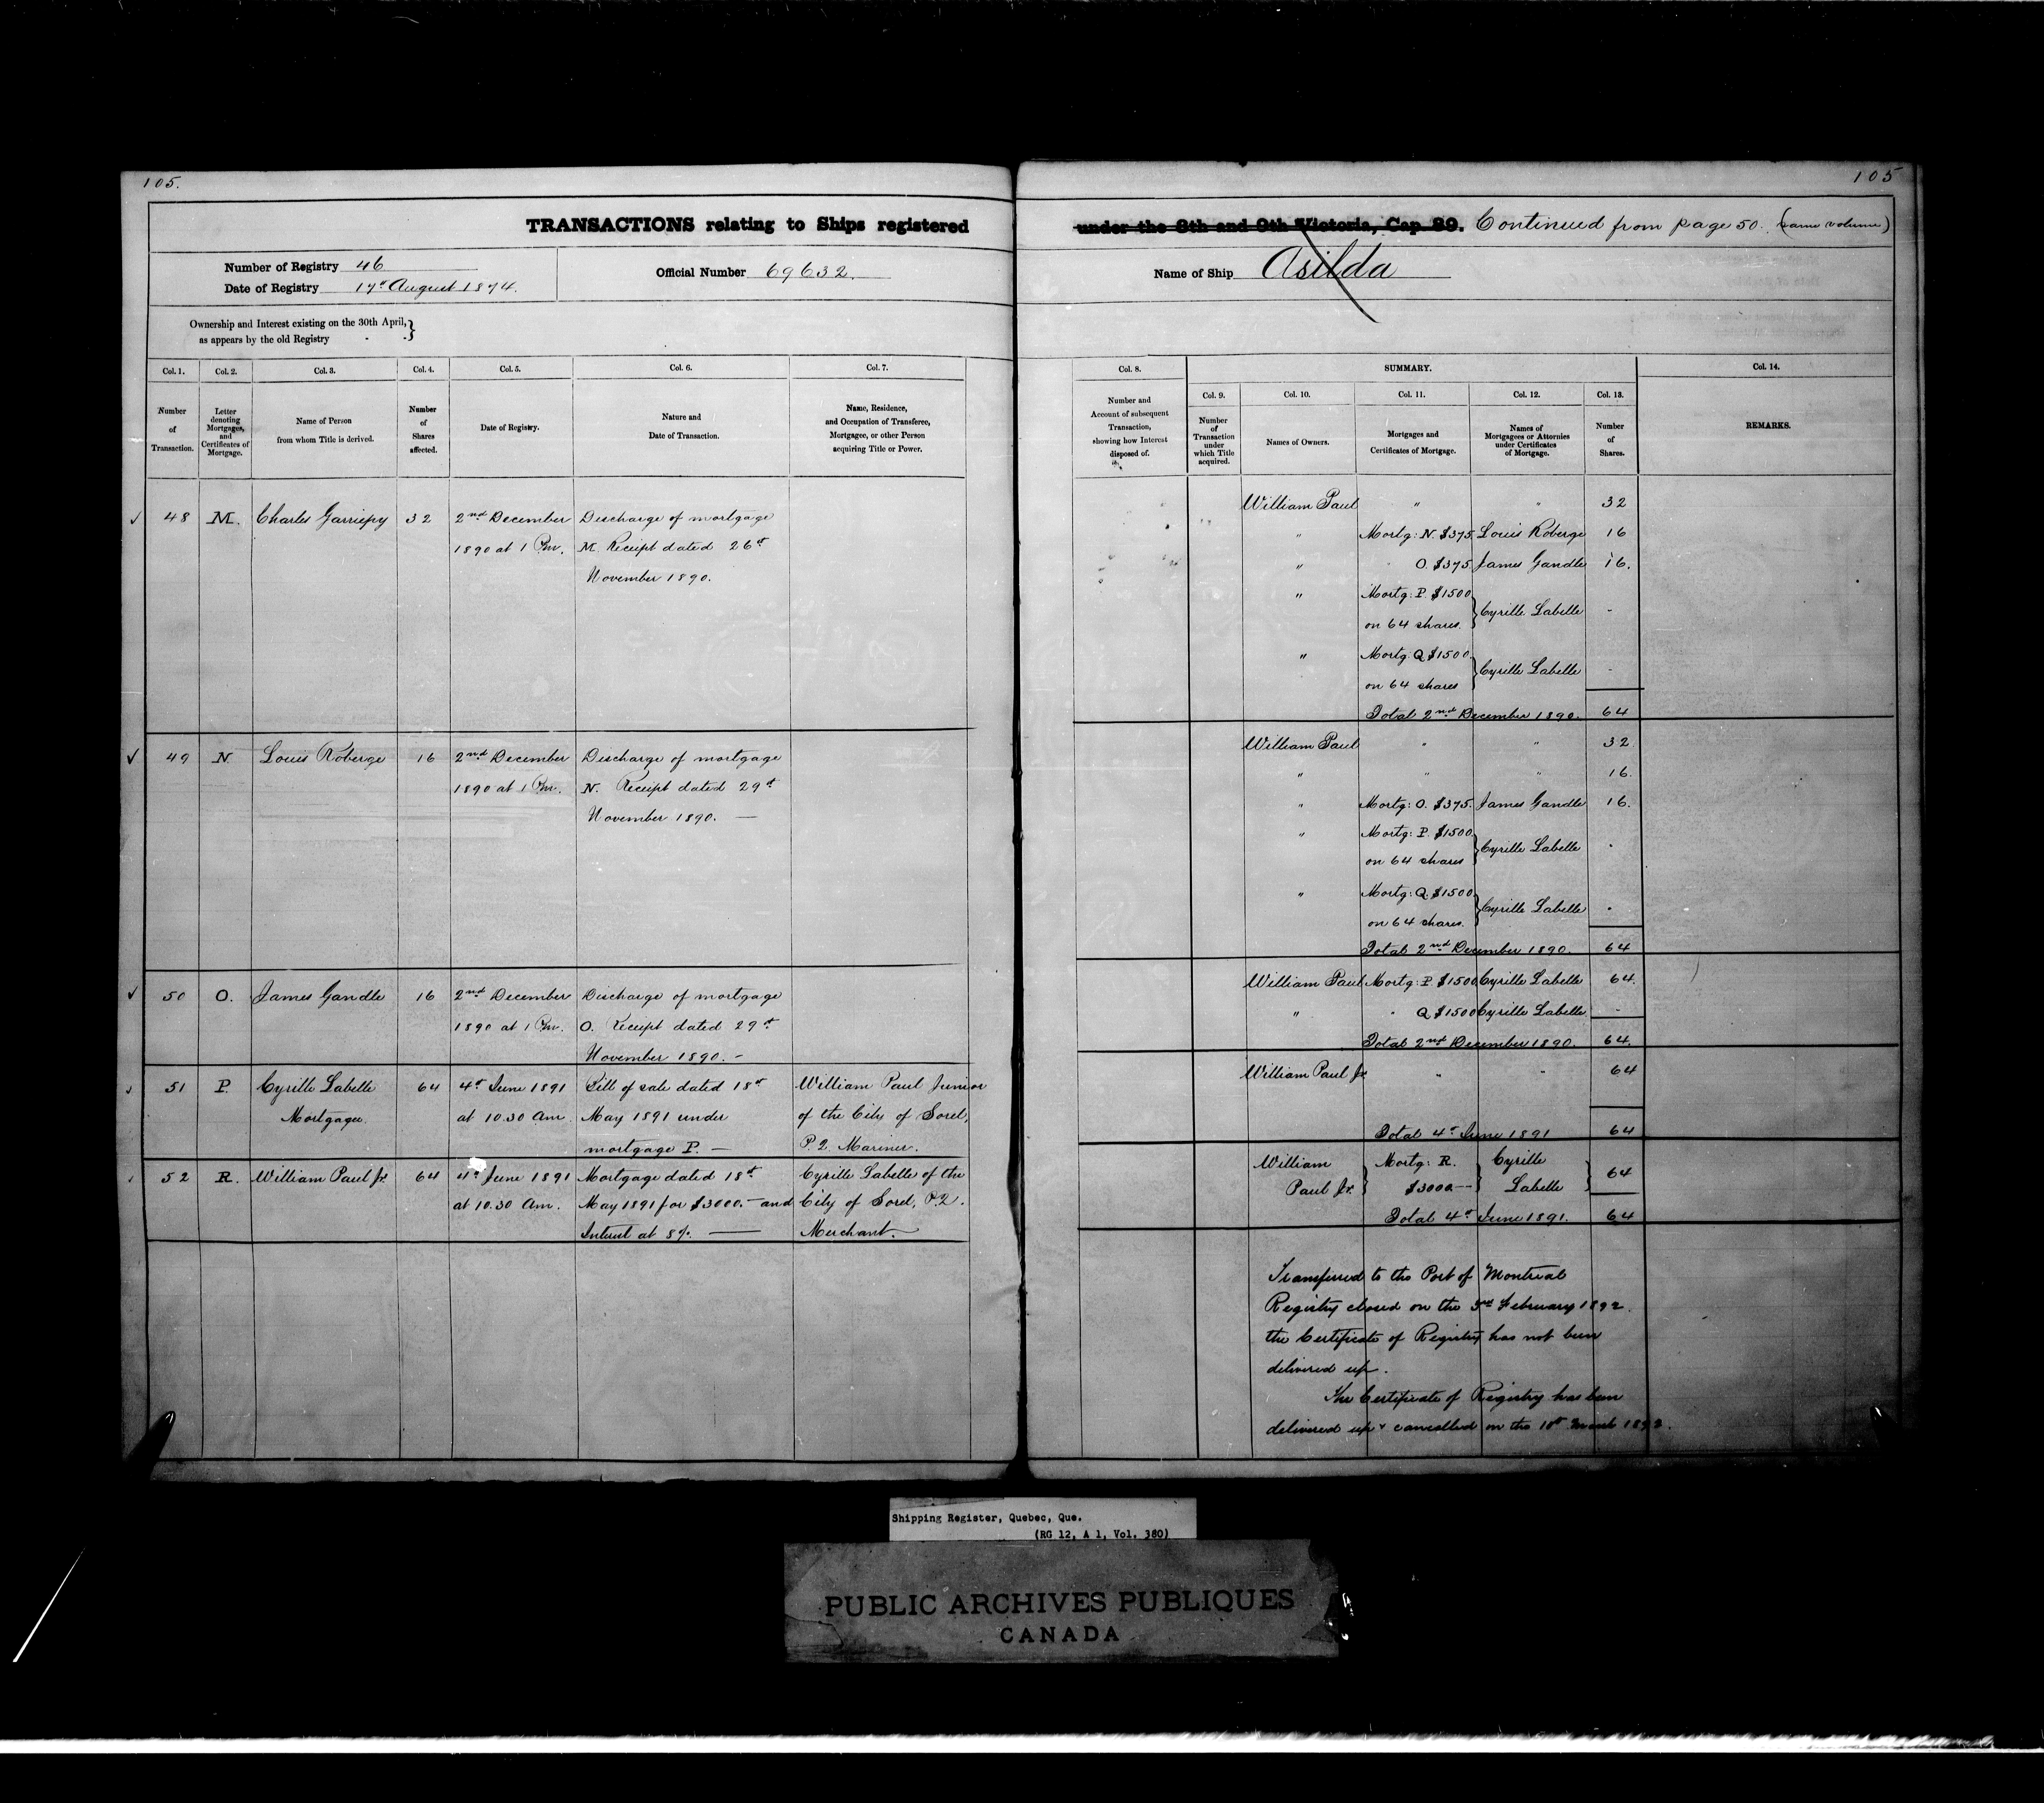 105.
TRANSACTIONS relating to Ships registered
Number of Registry 46
Date of Registry 17th August 1874.
Official Number 69632.
Ownership and Interest existing on the 30th April, }
as appears by the old Registry - - }
Col. 1.
Number
of
Transaction.
Col. 2.
Letter
denoting
Mortgages,
and
Certificates of
Mortgage.
Col. 3.
Name of Person
from whom Title is derived.
Col. 4.
Number
of
Shares
affected.
Col. 5.
Date of Registry.
Col. 6.
Nature and
Date of Transaction.
Col. 7.
Name, Residence,
and Occupation of Transferee,
Mortgagee, or other Person
acquiring Title or Power.
48 M. Charles Garriepy 32 2nd December Discharge of mortgage
1890 at 1 P.m. M. Receipt dated 26th
November 1890.
49 N Louis Roberge 16 2nd December Discharge of mortgage
1890 at 1 P.m. N. Receipt dated 29th
November 1890. —
50 O. James Gandle 16 2nd December Discharge of mortgage
1890 at 1 P.m. O. Receipt dated 29th
November 1890. -
51 P. Cyrille Labelle 64 4th June 1891 Bill of sale dated 18th William Paul Junior
Mortgagee. at 10.30 Am. May 1891 under of the City of Sorel,
mortgage P. — P.Q. Mariner.
52 R. William Paul Jr. 64 4th June 1891 Mortgage dated 18th Cyrille Labelle of the
at 10.30 Am. May 1891 for $3000.- and City of Sorel, P.Q.
Interest at 8%. — Merchant.
105
under the 8th and 9th Victoria, Cap. 89. Continued from page 50. (same volume)
Name of Ship Asilda
Col. 8.
Number and
Account of subsequent
Transaction,
showing how Interest
disposed of.
SUMMARY.
Col. 9.
Number
of
Transaction
under
which Title
acquired.
Col. 10.
Names of Owners.
Col. 11.
Mortgages and
Certificates of Mortgage.
Col. 12.
Names of
Mortgagees or Attornies
under Certificates
of Mortgage.
Col. 13.
Number
of
Shares.
Col. 14.
REMARKS.
William Paul " " 32
" Mortg: N. $375 Louis Roberge 16
" O. $375 James Gandle 16.
" Mortg: P. $1500
on 64 shares. } Cyrille Labelle -
" Mortg: Q $1500.
on 64 shares } Cyrille Labelle -
Total 2nd December 1890. 64
William Paul " " 32
" " " 16.
" Mortg: O. $375. James Gandle 16.
" Mortg: P. $1500.
on 64 shares } Cyrille Labelle -
" Mortg: Q. $1500
on 64 shares. } Cyrille Labelle -
Total 2nd December 1890. 64
William Paul Mortg: P $1500 Cyrille Labelle 64.
" " Q $1500 Cyrille Labelle. -
Total 2nd December 1890. 64.
William Paul Jr. " " 64
Total 4th June 1891 64
William Mortg: R. Cyrille
Paul Jr. } $3000.— } Labelle } 64
Total 4th June 1891. 64
Transferred to the Port of Montreal
Registry closed on the 3rd February 1892.
the Certificate of Registry has not been
delivered up.
The Certificate of Registry has been
delivered up & cancelled on the 10th March 1892.
Shipping Register, Quebec, Que.
(RG 12, A 1, Vol. 380)
PUBLIC ARCHIVES PUBLIQUES
CANADA